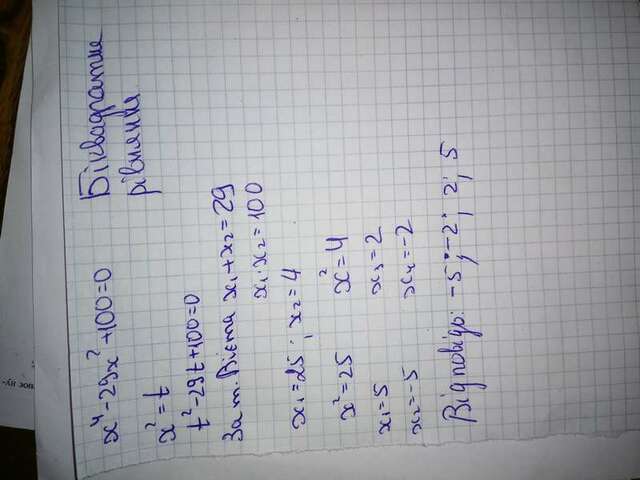 x⁴-29x²+100=0
Біквадратне
рівняння
x²=t
t²-29t+100=0
За т. Вієта x₁+x₂=29
x₁·x₂=100
x₁=25; x₂=4
x²=25 x²=4
x₁=5 x₃=2
x₂=-5 x₄=-2
Відповідь: -5; -2; 2; 5